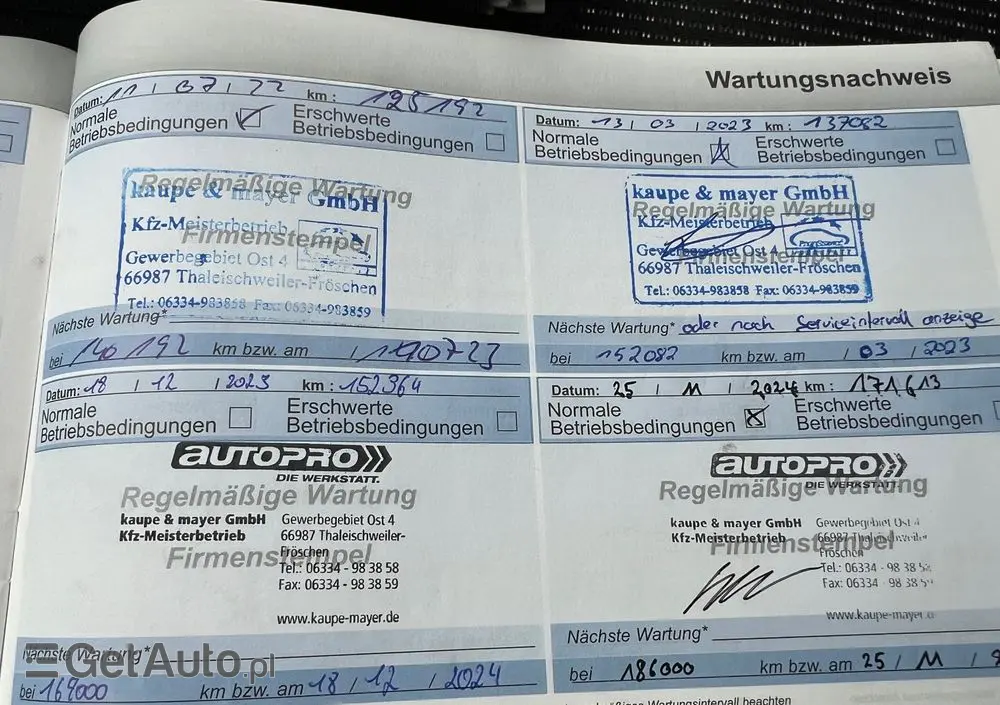 Wartungsnachweis
Datum: 11 / 07 / 22 km: 125192
Normale Betriebsbedingungen
Erschwerte Betriebsbedingungen
Regelmäßige Wartung
kaupe & mayer GmbH
Kfz-Meisterbetrieb
Firmenstempel
Gewerbegebiet Ost 4
66987 Thaleischweiler-Fröschen
Tel.: 06334-983858 Fax: 06334-983859
Nächste Wartung*
bei 140192 km bzw. am / 1 90723
Datum: 13 / 03 / 2023 km: 137082
Normale Betriebsbedingungen
Erschwerte Betriebsbedingungen
kaupe & mayer GmbH
Regelmäßige Wartung
Kfz-Meisterbetrieb
Gewerbegebiet Ost 4
Firmenstempel
66987 Thaleischweiler-Fröschen
Tel.: 06334-983858 Fax: 06334-983859
Nächste Wartung* oder nach Serviceintervall anzeige
bei 152082 km bzw. am / 03 / 2023
Datum: 18 / 12 / 2023 km: 152364
Normale Betriebsbedingungen
Erschwerte Betriebsbedingungen
AUTOPRO
DIE WERKSTATT.
Regelmäßige Wartung
kaupe & mayer GmbH Gewerbegebiet Ost 4
Kfz-Meisterbetrieb 66987 Thaleischweiler-
Fröschen
Firmenstempel
Tel.: 06334 - 98 38 58
Fax: 06334 - 98 38 59
www.kaupe-mayer.de
Nächste Wartung*
bei 169000 km bzw. am 18 / 12 / 2024
Datum: 25 / 11 / 2024 km: 171613
Normale Betriebsbedingungen
Erschwerte Betriebsbedingungen
AUTOPRO
DIE WERKSTATT.
Regelmäßige Wartung
kaupe & mayer GmbH Gewerbegebiet Ost 4
Kfz-Meisterbetrieb 66987 Thaleischweiler-
Fröschen
Firmenstempel
Tel.: 06334 - 98 38 58
Fax: 06334 - 98 38 59
www.kaupe-mayer.d
Nächste Wartung*
bei 186000 km bzw. am 25 / 11 /
Wartungsintervall beachten
GetAuto.pl